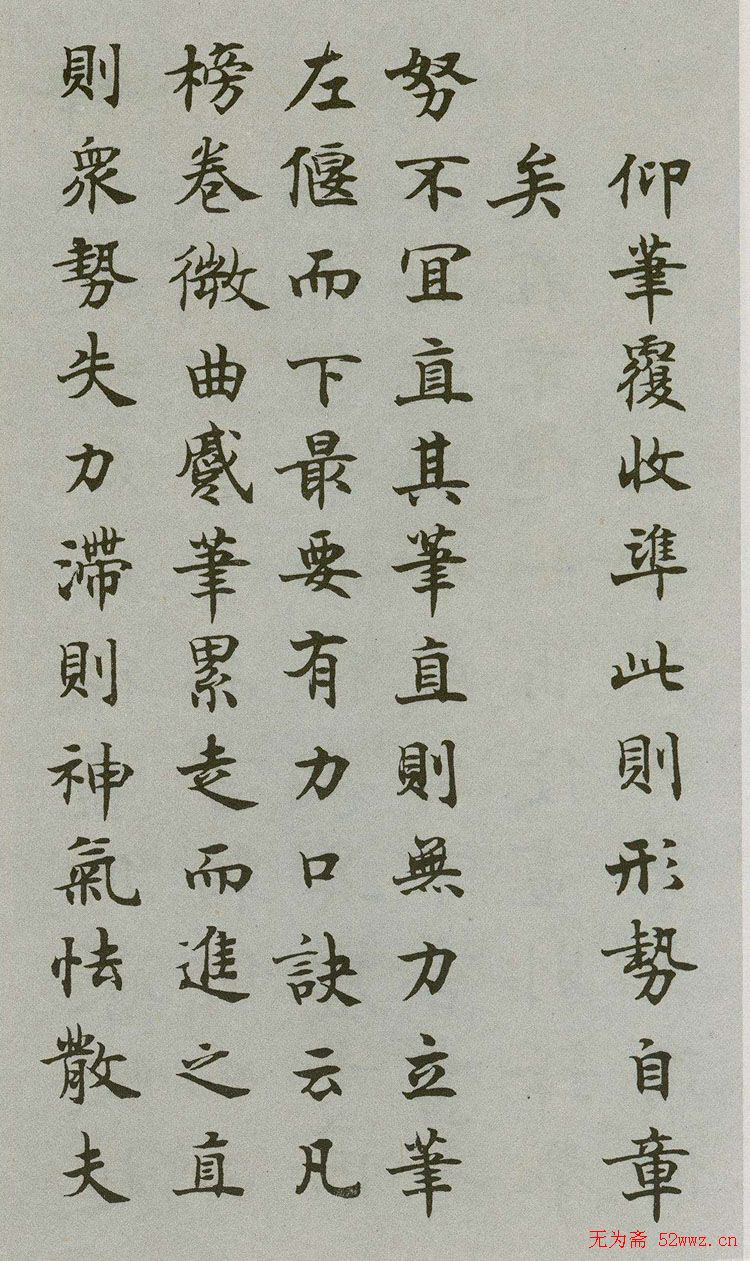 仰筆覆收準此則形勢自章
矣
努不宜直其筆直則無力立筆
左偃而下最要有力口訣云凡
榜卷微曲蹙筆累走而進之直
則眾勢失力滯則神氣怯散夫
无为斋 52wwz.cn